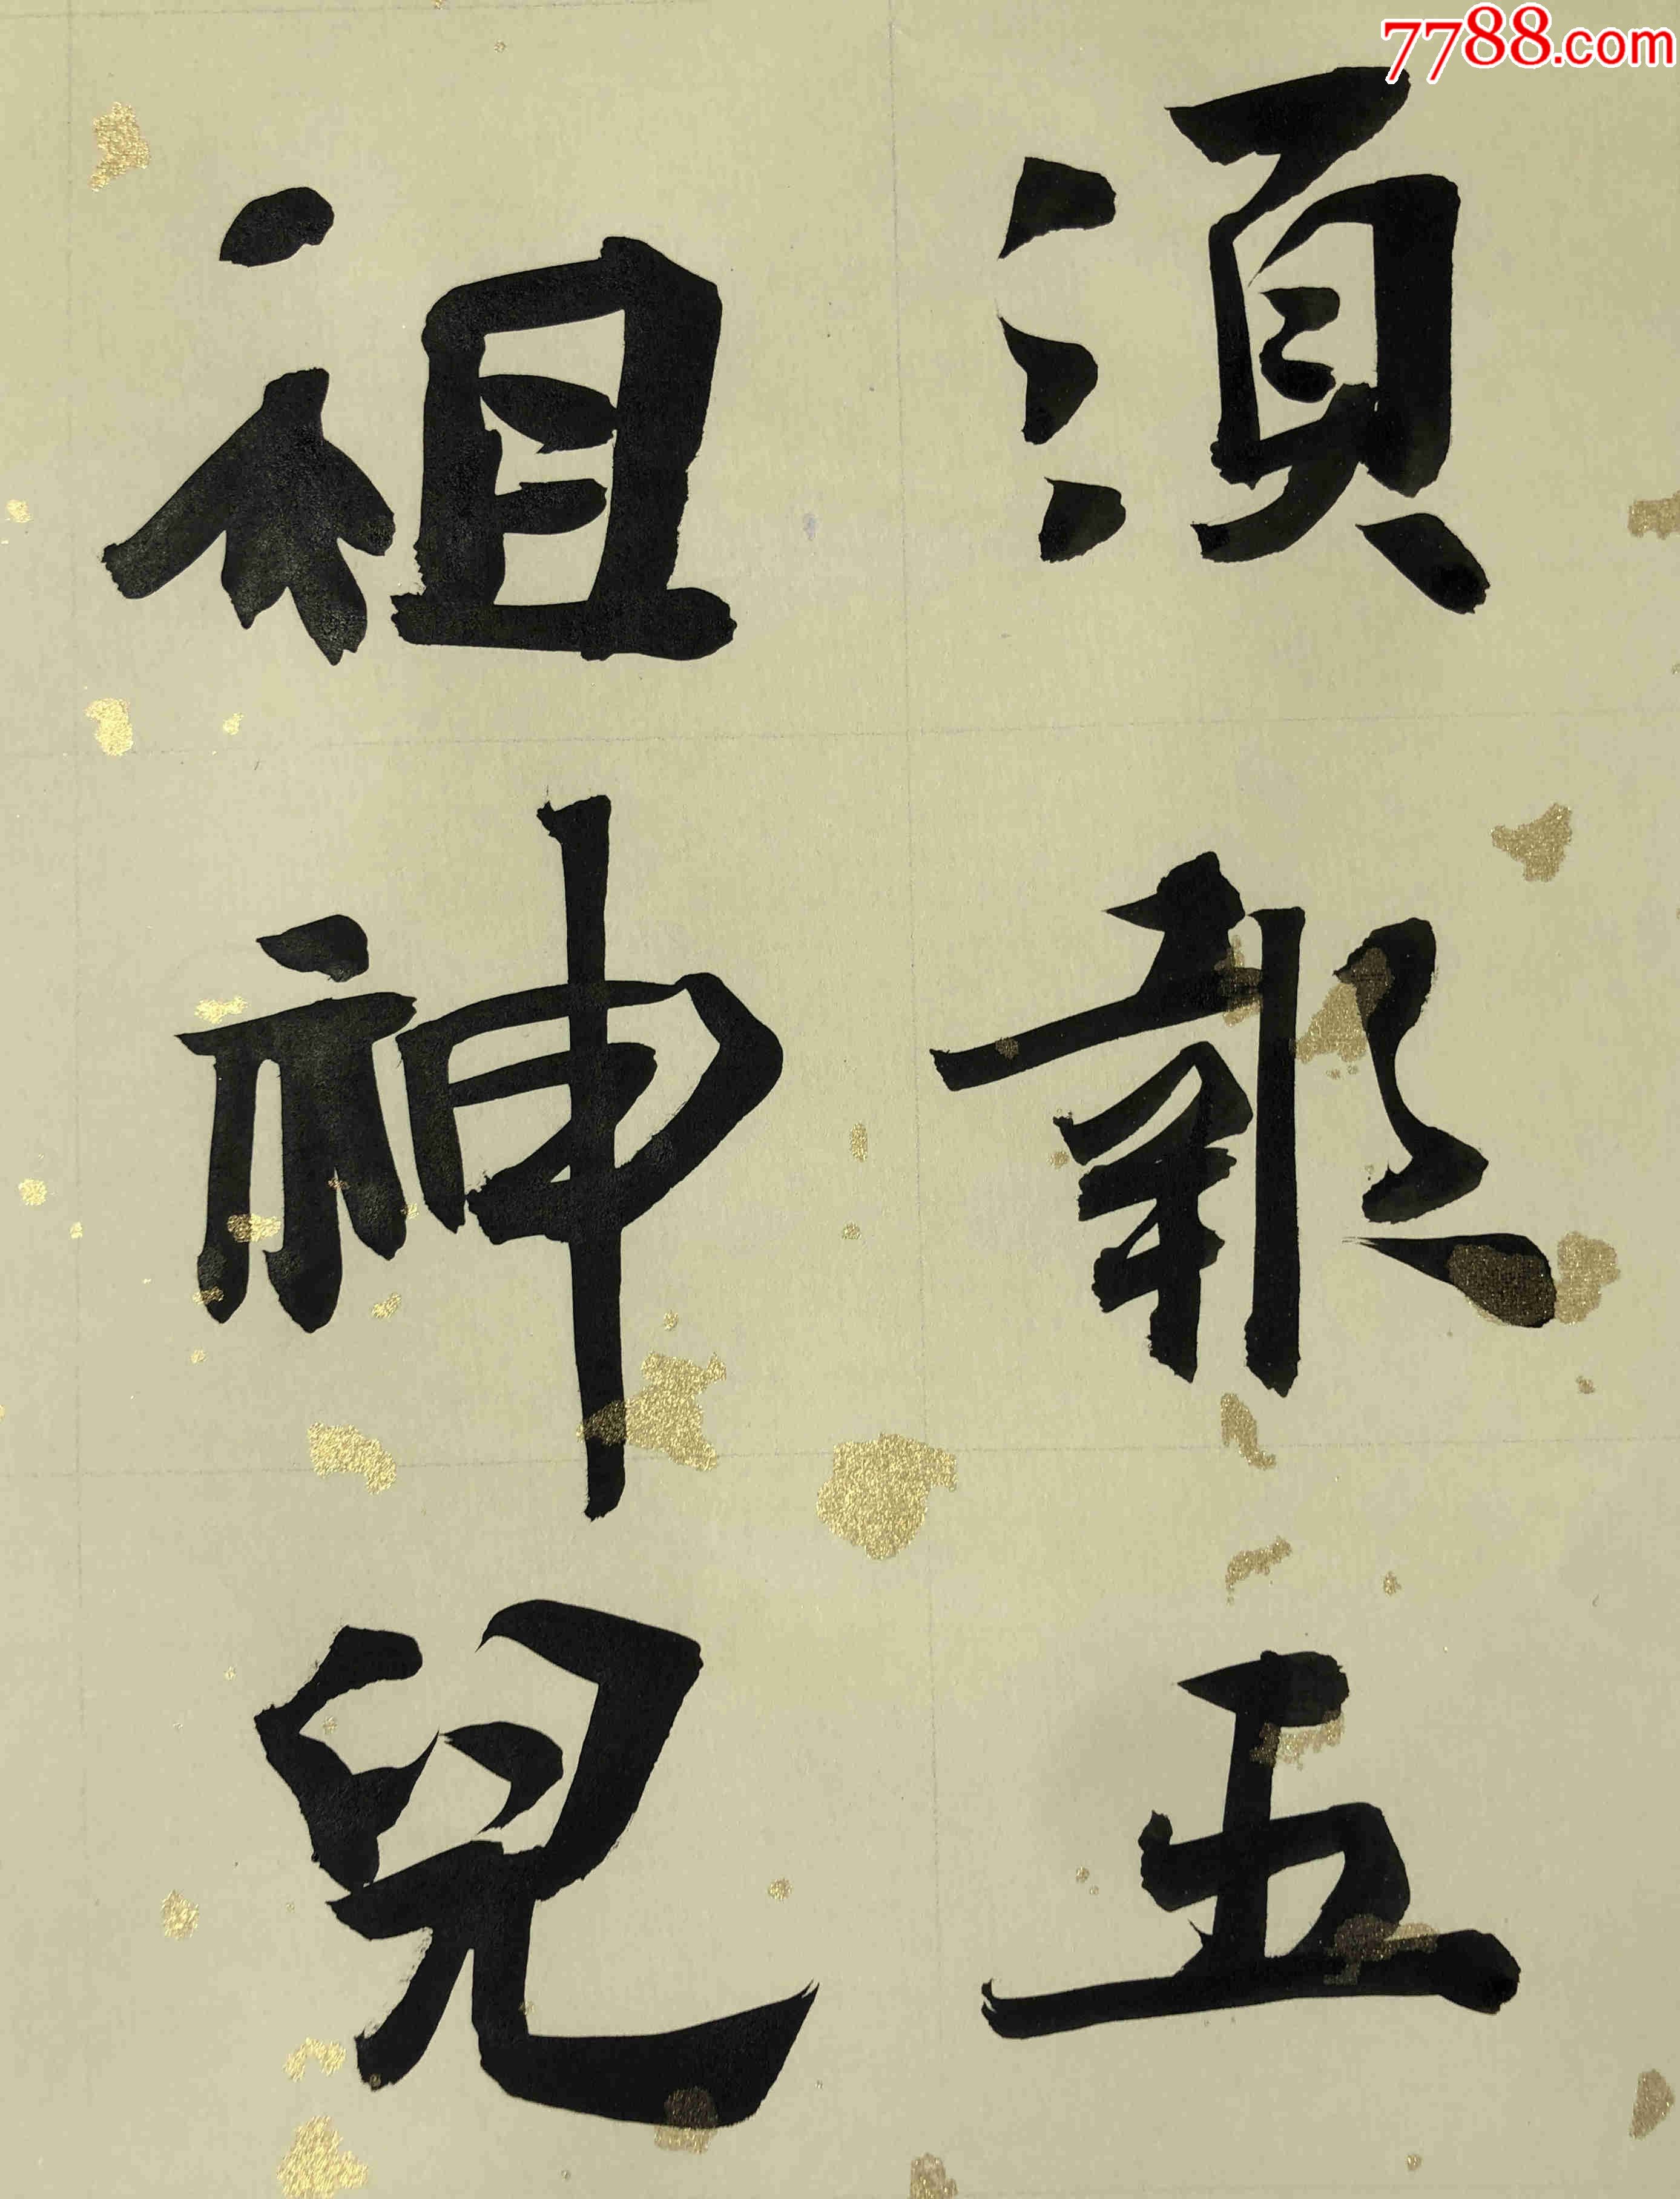 7788.com
須報五
祖神兒